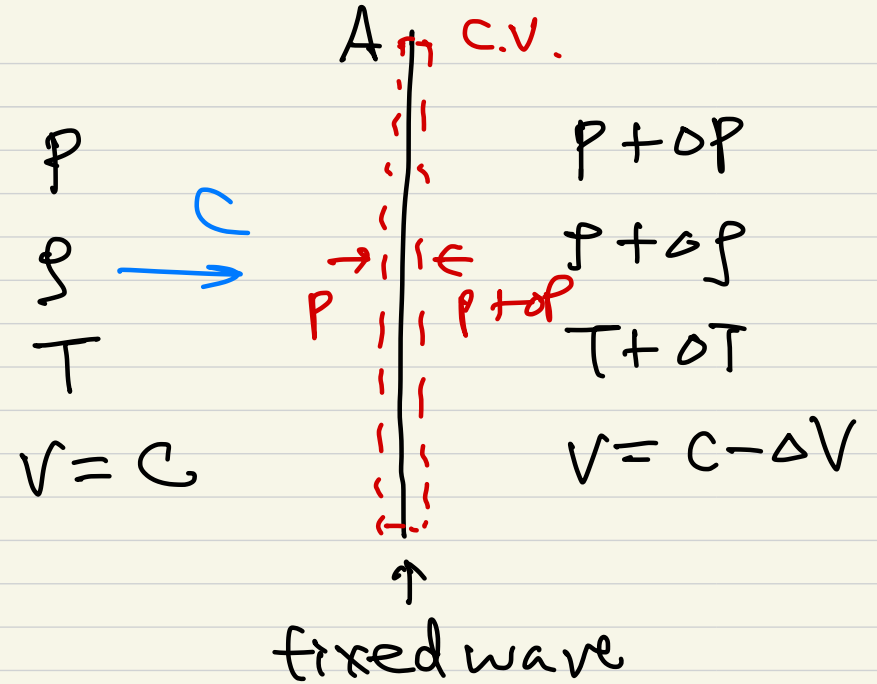 A C.V.
P
C
ρ
T
V = C
P P + ΔP
P + ΔP
ρ + Δρ
T + ΔT
V = C - ΔV
↑
fixed wave